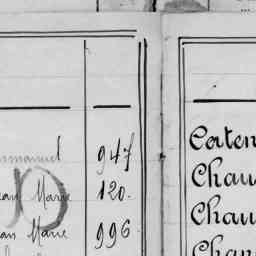 mmanuel 947
ean Marie 120.
an Marie 996.
Caten
Chau
Chau
Chan